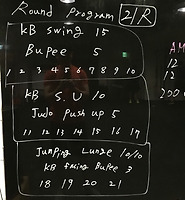 Round Program 21/R
KB Swing 15
Bupee 5
1 2 3 4 5 6 7 8 9 10
KB S.U 10
Judo Push up 5
11 12 13 14 15 16 17
Jumping Lunge 10/10
KB Swing Bupee 3
18 19 20 21
AM
12
12
200